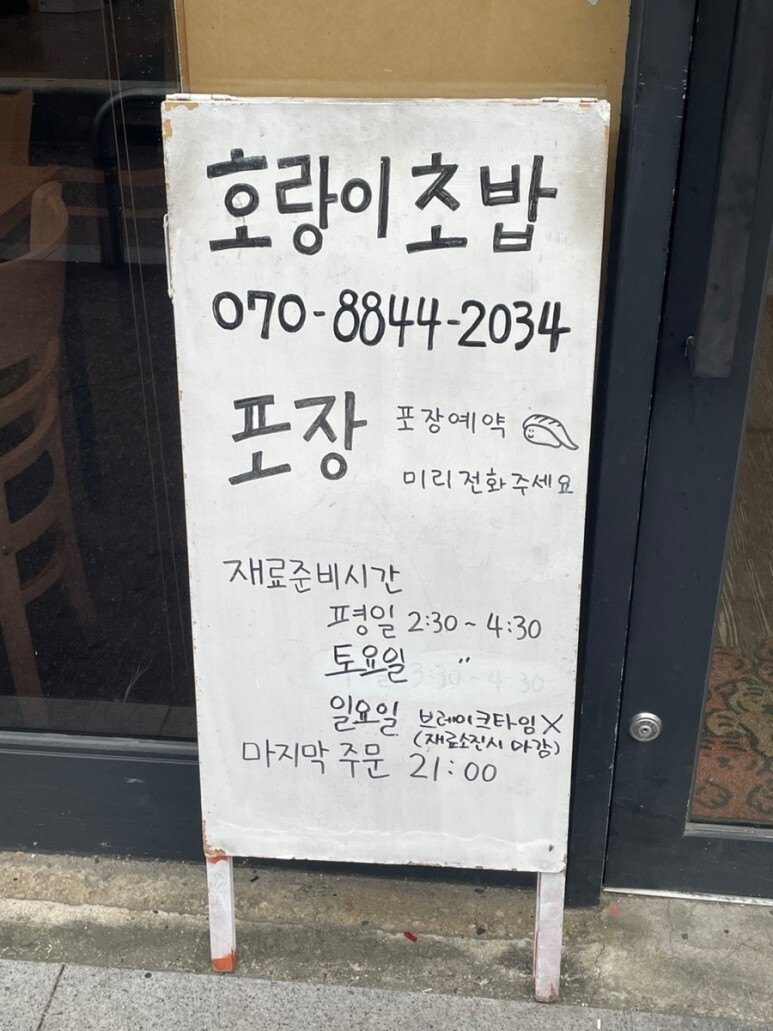 호랑이초밥
070-8844-2034
포장 포장예약
미리 전화주세요
재료준비시간
평일 2:30 ~ 4:30
토요일 〃
3:30 - 4:30
일요일 브레이크타임 X
(재료소진시 마감)
마지막 주문 21:00